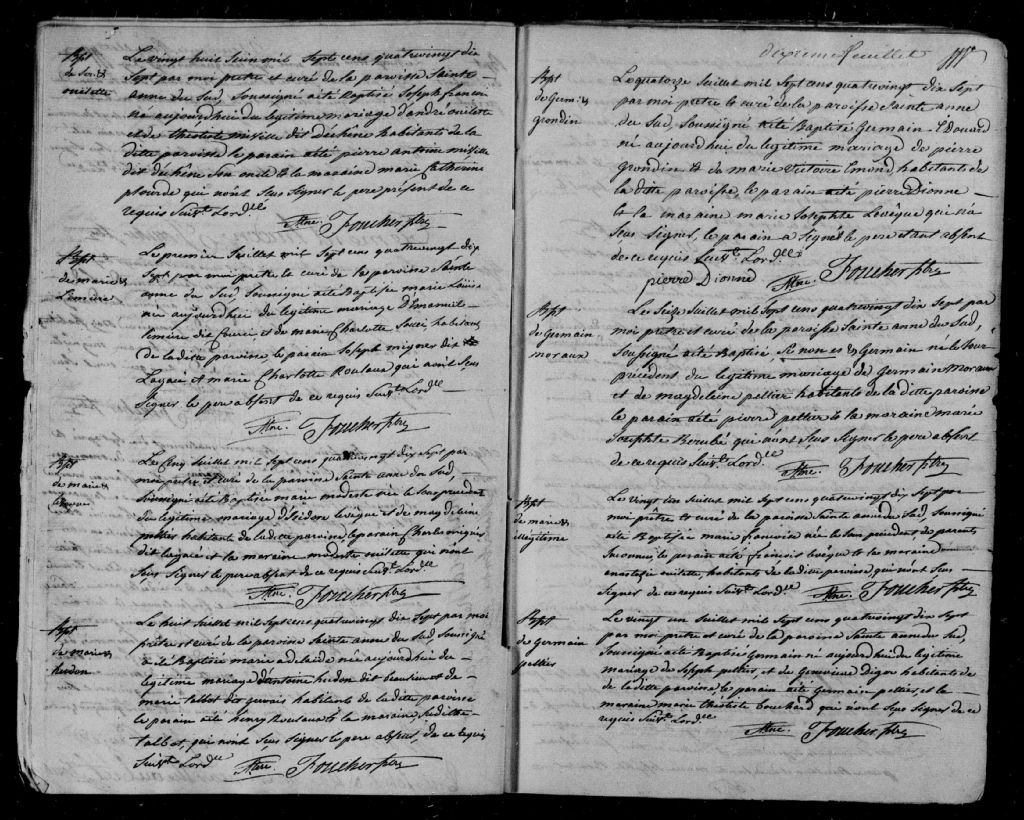 Bpt
de Jos. fr.
ouilette
Le vingt huit Juin mil Sept cens quatrevingt dix
Sept par moi pretre et curé de la paroisse Sainte
anne du Sud, Soussigné a été Baptisé Joseph francois
né aujourdhui du legitime mariage d'andré ouilette
et de theotiste miville dit dechêne habitants de la
ditte paroisse le parain a été pierre antoine miville
dit duchêne Son oncle & la maraine marie Catherine
plourde qui n'ont Sçus Signer le pere présent de ce
requis Suivt. Lord.ce
Mne. Foucher ptre
Bpt
de marie
Lemière
Le premier Juillet mil Sept cens quatrevingt dix
Sept par moi pretre et curé de la paroisse Sainte
anne du Sud, Soussigné a été Baptisée marie Louise
née aujourdhui du legitime mariage
lemiere dit Courci et de marie Charlotte Soucé, habitants
de la ditte paroisse le parain Joseph migner dit
Lagacé et marie Charlotte Rouleau qui n'ont Sçus
Signer le pere absent de ce requis Suivt. Lord.ce
Mne. Foucher ptre
Bpt
de marie
leveque
Le Cinq Juillet mil Sept cens quatrevingt dix Sept par
moi pretre et curé de la paroisse Sainte anne du Sud,
Soussigné a été Baptisée marie modeste née le Jour precedent
du legitime mariage d'Isidore levêque et de magdelaine
miville habitants de la ditte paroisse, le parain Charles migner
dit lagacé et la maraine modeste ouilette qui n'ont
Sçus Signer le pere absent de ce requis Suivt. Lord.ce
Mne. Foucher ptre
Bpt
de marie
hudon
Le huit Juillet mil Sept cens quatrevingt dix Sept par moi
prêtre et curé de la paroisse Sainte anne du Sud Soussigné
a été Baptisée marie adelaide née aujourdhui du
legitime mariage d'antoine hudon dit beaulieu et de
marie talbot dit gervais habitants de la ditte paroisse
le parain a été henry Rousseau & la maraine Judithe
talbot, qui n'ont Sçus Signer le pere absent, de ce requis
Suivt. Lord.ce
Mne. Foucher ptre
dixieme feuillet
Bpt
de Germ:
grondin
Le quatorze Juillet mil Sept cens quatrevingt dix Sept
par moi pretre & curé de la paroisse Sainte anne
du Sud, Soussigné a été Baptisé Germain Edouard
né aujourdhui du legitime mariage de pierre
grondin & de marie Victoire Emond, habitants de
la ditte paroisse, le parain a été pierre Dionne
& la maraine marie Josephte Levêque qui n'a
Sçus Signer, le parain a Signé le pere etant absent
de ce requis Suivt. Lord.ce
pierre Dionne Mne. Foucher ptre
Bpt
de Germain
moraux
Le Seize Juillet mil Sept cens quatrevingt dix Sept par
moi pretre et curé de la paroisse Sainte anne du Sud,
Soussigné a été Baptisé Germain né le Jour
precedent du legitime mariage de Germain moraux
et de magdeleine peltier habitants de la ditte paroisse
le parain a été pierre peltier & la maraine marie
Josephte Berubé qui n'ont Sçus Signer le pere absent
de ce requis Suivt. Lord.ce
Mne. Foucher ptre
Bpt
de marie fr
illegitime
Le vingt un Juillet mil Sept cens quatrevingt dix Sept par
moi prêtre & curé de la paroisse Sainte anne du Sud, Soussigné
a été Baptisée marie francoise née le Jour precedent de parents
Inconnus le parain a été francois levêque & la maraine
anastasie ouilette, habitants de la ditte paroisse, qui n'ont Sçus
Signer de ce requis Suivt. Lord.ce
Mne. Foucher ptre
Bpt
de Germain
peltier
Le vingt un Juillet mil Sept cens quatrevingt dix Sept
par moi pretre et curé de la paroisse Sainte anne du Sud,
Soussigné a été Baptisé Germain né aujourdhui du legitime
mariage de Joseph peltier, et de Genevieve Digon habitants de
de la ditte paroisse le parain a été Germain peltier, et la
maraine marie theotiste bouchard qui n'ont Sçus Signer de ce
requis Suivt. Lord.ce
Mne. Foucher ptre